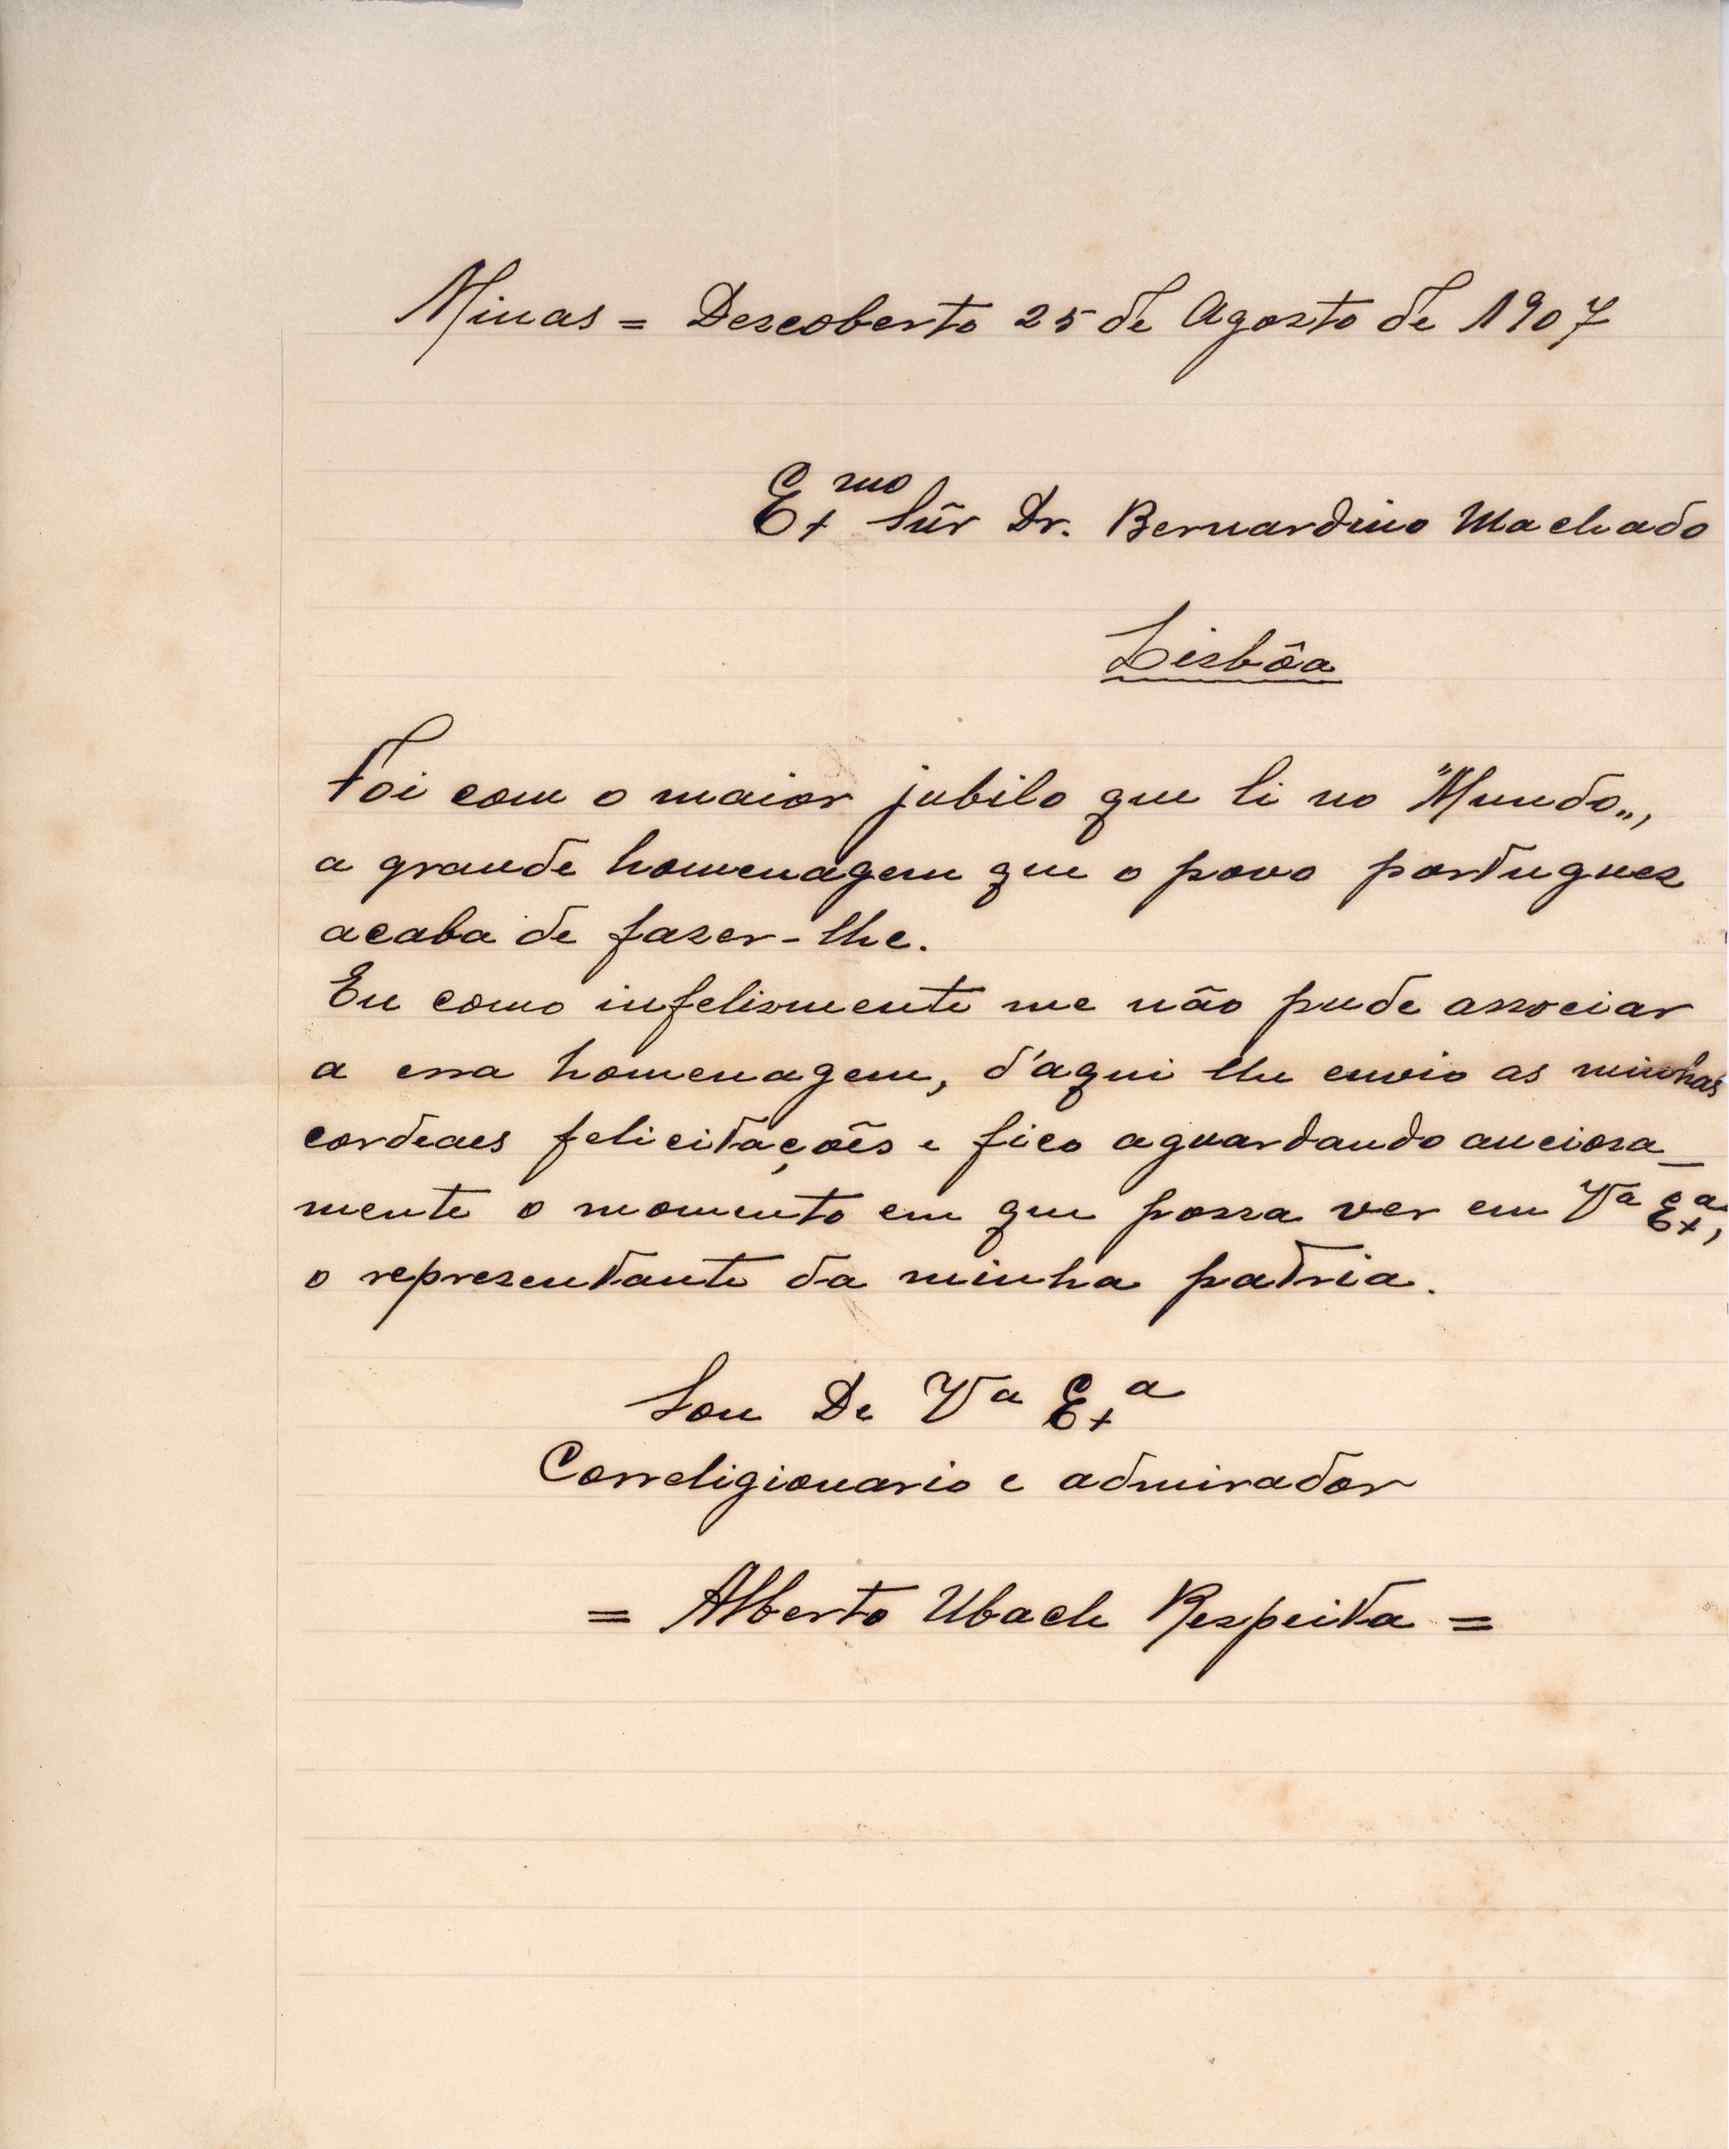 Minas = Descoberto 25 de Agosto de 1907
Exmo Sñr Dr. Bernardino Machado
Lisbôa
Foi com o maior jubilo que li no "Mundo„,
a grande homenagem que o povo portuguez
acaba de fazer-lhe.
Eu como infelismente me não pude associar
a essa homenagem, d'aqui lhe envio as minhas
cordeaes felicitações e fico aguardando anciosa_
mente o momento em que possa ver em Va Exa,
o representante da minha patria.
Sou De Va Exa
Correligionario e admirador
= Alberto Ubach Respeita =